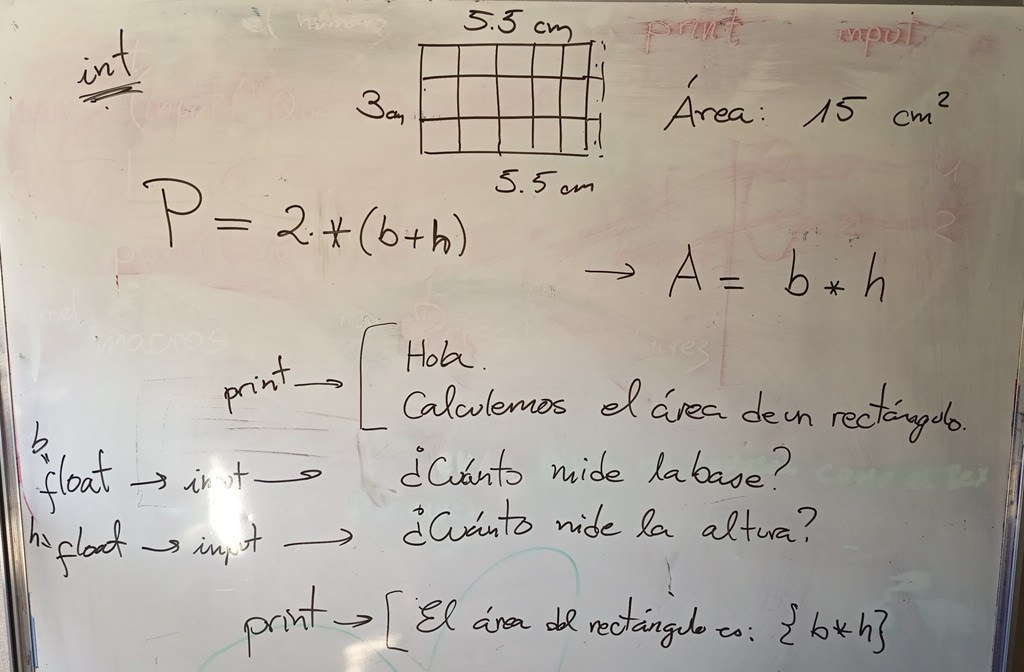 int
5.5 cm
print input
3cm
Área: 15 cm²
5.5 cm
P = 2*(b+h)
→ A = b * h
macros
print → Hola.
Calculemos el área de un rectángulo.
b = float → input → ¿Cuánto mide la base?
h = float → input → ¿Cuánto mide la altura?
print → [ El área del rectángulo es: {b*h}